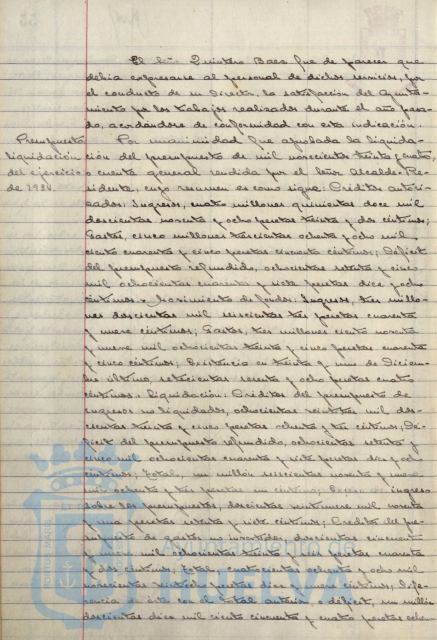 El Sr. Quintero Baez fue de parecer que
debía expresarse al personal de dichos servicios, por
el conducto de su Director, la satisfacción del Ayunta-
miento por los trabajos realizados durante el año pasa-
do, acordándose de conformidad con esta indicación.
Presupuesto
liquidación
del ejercicio
de 1934.
Por unanimidad fue aprobada la liquida-
ción del presupuesto de mil novecientos treinta y cuatro,
o cuenta general rendida por el Señor Alcalde-Pre-
sidente, cuyo resumen es como sigue: Créditos autori-
zados: Ingresos, cuatro millones quinientas doce mil
doscientas noventa y ocho pesetas treinta y dos céntimos;
Gastos, cinco millones trescientas ochenta y ocho mil
ciento cuarenta y cinco pesetas cincuenta céntimos; Déficit
del presupuesto refundido, ochocientas setenta y cinco
mil ochocientas cuarenta y siete pesetas diez y ocho
céntimos.- Movimiento de fondos: Ingresos, tres millo-
nes doscientas mil seiscientas tres pesetas cuarenta
y nueve céntimos; Gastos, tres millones ciento noventa
y nueve mil ochocientas treinta y cinco pesetas cuarenta
y cinco céntimos; Existencia en treinta y uno de Diciem-
bre último, setecientas sesenta y ocho pesetas cuatro
céntimos.- Liquidación: Créditos del presupuesto de
ingresos no liquidados, ochocientas mil dos-
cientas treinta y cinco pesetas ochenta y tres céntimos; Dé-
ficit del presupuesto refundido, ochocientas setenta y
cinco mil ochocientas cuarenta y siete pesetas diez y ocho
céntimos; Total, un millón seiscientas noventa y nueve
mil ochenta y tres pesetas un céntimo; Exceso de ingreso
sobre los presupuestos, doscientas mil noventa
y una pesetas setenta y siete céntimos; Crédito del pre-
supuesto de gastos no invertidos, doscientas cincuenta
y nueve mil ochocientas treinta y pesetas cuarenta
y dos céntimos; Total, cuatrocientas ochenta y ocho mil
novecientas veintiocho pesetas diez y nueve céntimos; Dife-
rencia de éste con el total anterior, o déficit, un millón
doscientas diez mil ciento cincuenta y cuatro pesetas ochen-
Ayuntamiento de
HUELVA